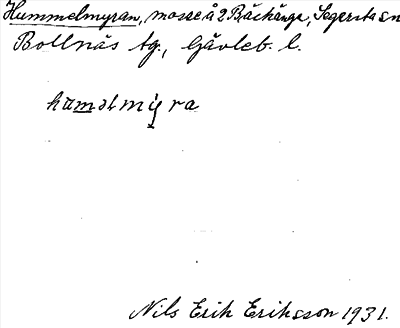 Hummelmyran, mosse å 2 Bäckänge, Segersta sn
Bollnäs tg., Gävleb. l.
hɯməlmyra
Nils Erik Eriksson 1931.